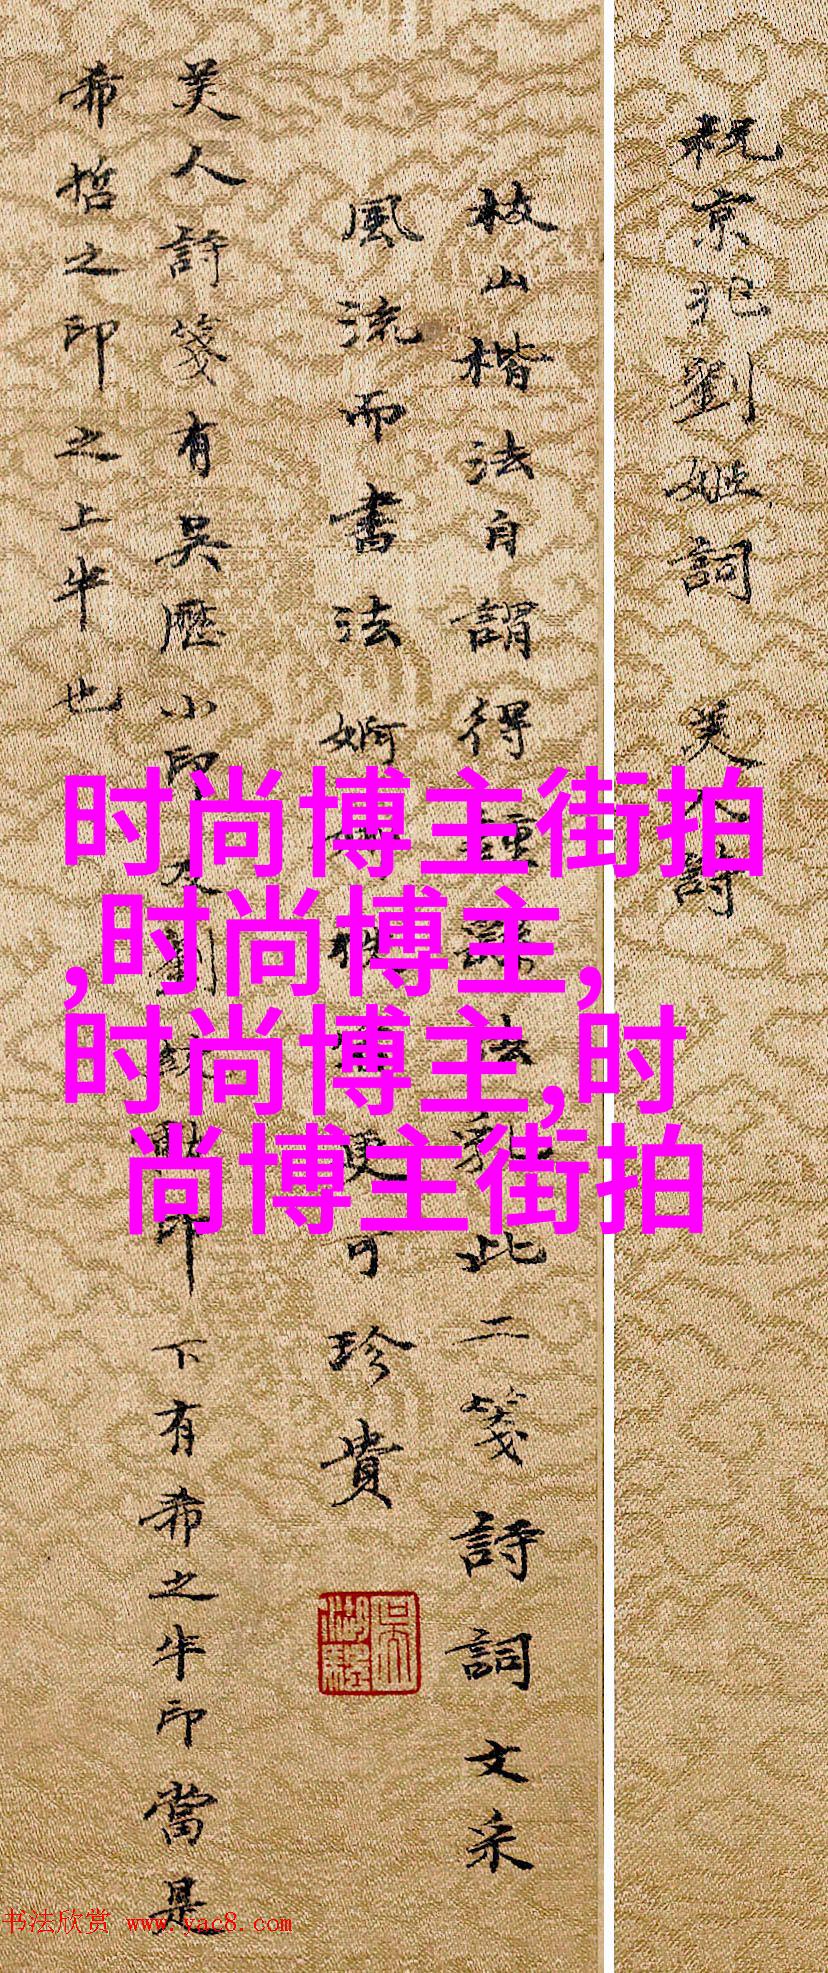 祝京兆劉姬詞 美人詩
枝山楷法自謂得鍾繇法乳此二箋詩詞文采
風流而書法婀娜更可珍貴
美人詩箋有吳歷小印及劉印下有希之半印當是
希哲之印之上半也
时尚博主街拍
,时尚博主,
时尚博主,时
尚博主街拍
书法欣赏 www.yac8.com